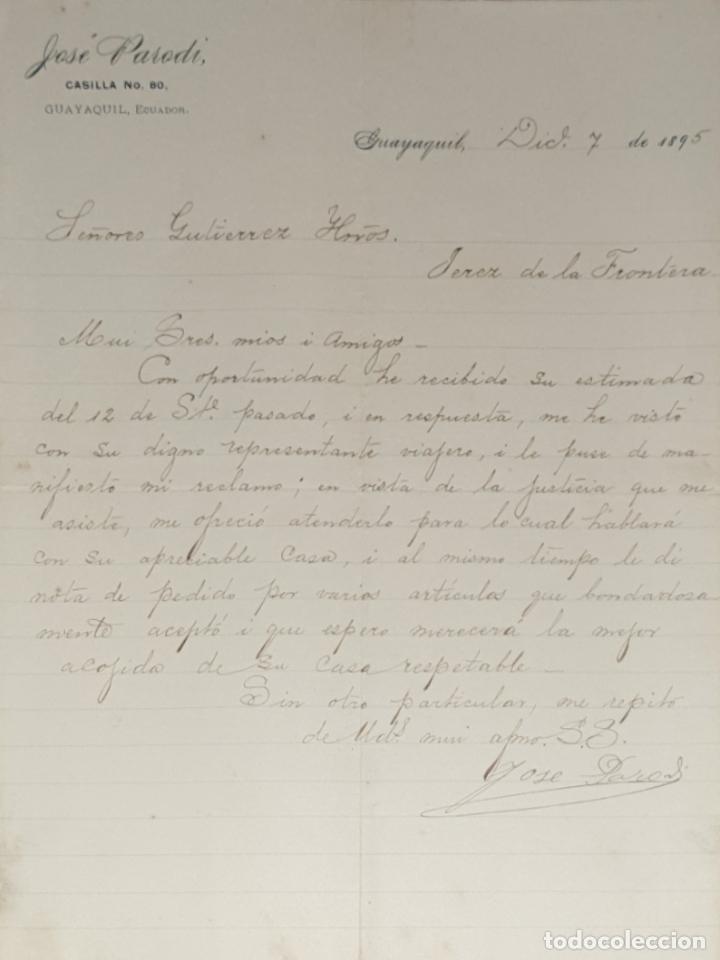 José Parodi,
CASILLA No. 80,
GUAYAQUIL, ECUADOR.
Guayaquil, Dic. 7 de 1895
Señores Gutierrez Hnos.
Jerez de la Frontera
Mui Sres. mios i Amigos_
Con oportunidad he recibido su estimada
del 12 de St. pasado, i en respuesta, me he visto
con su digno representante viajero, i le puse de ma-
nifiesto mi reclamo; en vista de la justicia que me
asiste, me ofreció atenderlo para lo cual hablará
con su apreciable Casa, i al mismo tiempo le di
nota de pedido por varios artículos que bondadosa
mente aceptó i que espero merecerá la mejor
acojida de su casa respetable_
Sin otro particular, me repito
de Uds. mui afmo. S.S.
Jose Parodi
todocoleccion.net